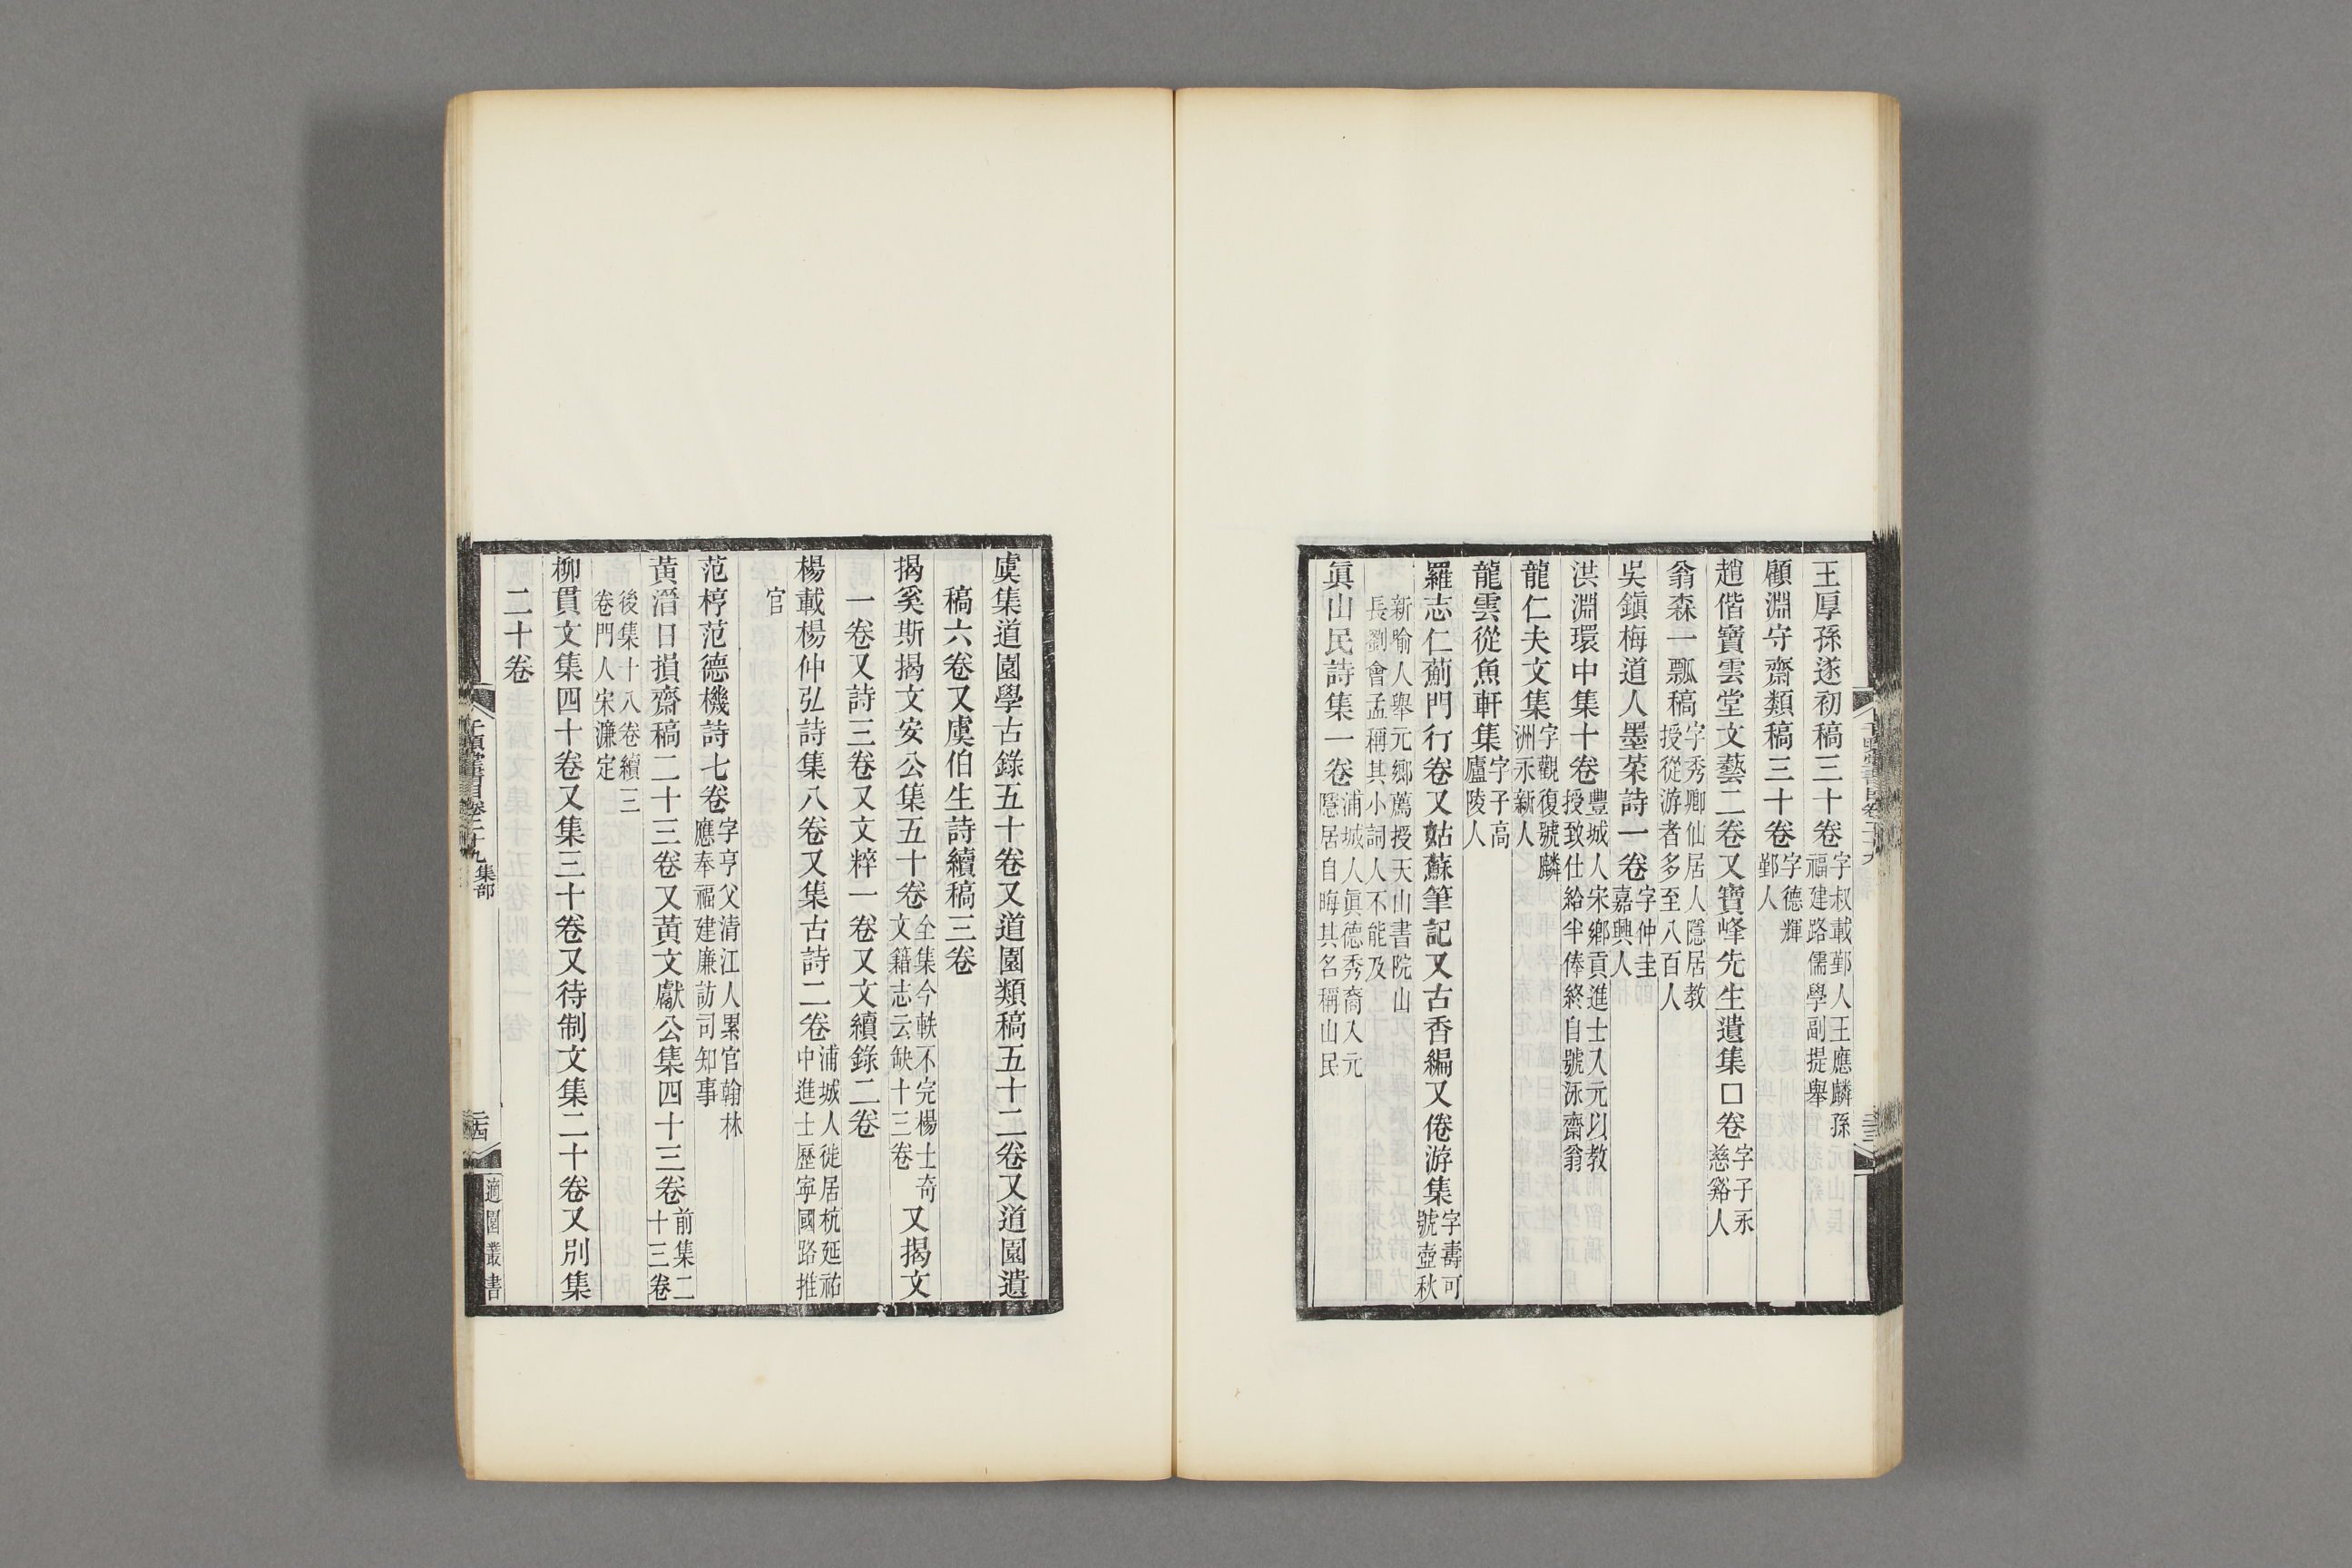 王厚孫遂初稿三十卷字叔載鄞人王應麟孫福建路儒學副提舉
顧淵守齋類稿三十卷字德輝鄞人
趙偕寶雲堂文藝二卷又寶峰先生遺集□卷字子永慈谿人
翁森一瓢稿字秀卿仙居人隱居教授從游者多至八百人
吳鎭梅道人墨菜詩一卷字仲圭嘉興人
洪淵環中集十卷豐城人宋鄉貢進士入元以教授致仕給半俸終自號泳齋翁
龍仁夫文集字觀復號麟洲永新人
龍雲從魚軒集字子高廬陵人
羅志仁薊門行卷又姑蘇筆記又古香編又倦游集字壽可號壺秋
新喻人舉元鄉薦授天山書院山長劉會孟稱其小詞人不能及
眞山民詩集一卷浦城人眞德秀裔入元隱居自晦其名稱山民
虞集道園學古錄五十卷又道園類稿五十二卷又道園遺
稿六卷又虞伯生詩續稿三卷
揭奚斯揭文安公集五十卷全集今軼不完楊士奇文籍志云缺十三卷又揭文
一卷又詩三卷又文粹一卷又文續錄二卷
楊載楊仲弘詩集八卷又集古詩二卷浦城人徙居杭延祐中進士歷寧國路推
官
范梈范德機詩七卷字亨父清江人累官翰林應奉福建廉訪司知事
黃溍日損齋稿二十三卷又黃文獻公集四十三卷前集二十三卷
後集十八卷續三卷門人宋濂定
柳貫文集四十卷又集三十卷又待制文集二十卷又別集
二十卷
千頃堂書目卷二十九 集部
二十四
適園叢書